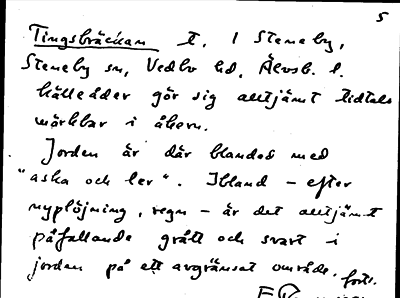 5
Tingsbräckan t. 1 Steneby,
Steneby sn, Vedbo hd, Älvsb. l.
källådder gör sig alltjämt tidtals
märkbar i åkern.
Jorden är där blandad med
"aska och ler". Ibland – efter
nyplöjning, regn – är det alltjämt
påfallande grått och svart i
jorden på ett avgränsat område. forts.